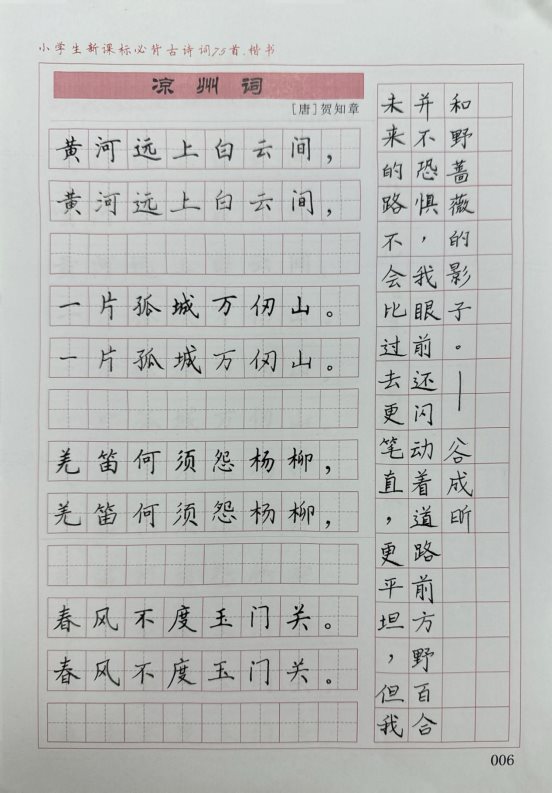 小学生新课标必背古诗词75首.楷书
凉州词
[唐]贺知章
黄河远上白云间，
黄河远上白云间，
一片孤城万仞山。
一片孤城万仞山。
羌笛何须怨杨柳，
羌笛何须怨杨柳，
春风不度玉门关。
春风不度玉门关。
未来的路不会比过去更笔直，更平坦，但我
并不恐惧，我眼前还闪动着道路前方野百合
和野蔷薇的影子。—谷成昕
006